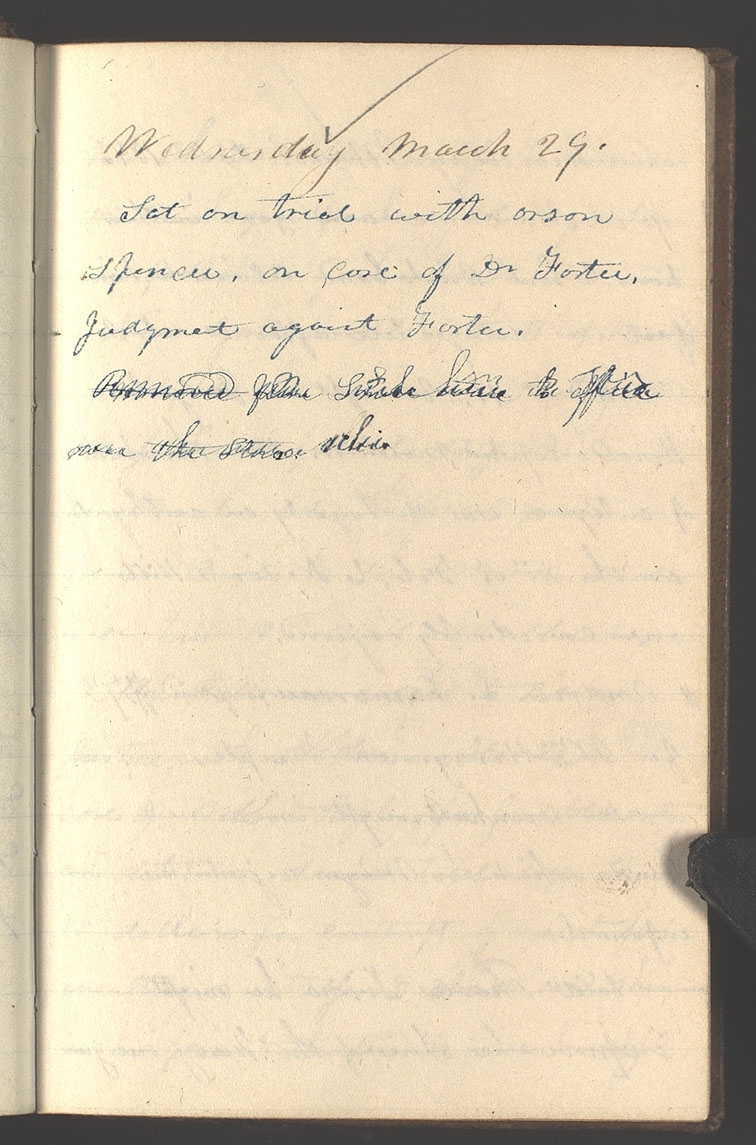 Wednesday March 29.
Sat on trial with orson
Spencer. on case of Dr Foster.
Judgmet against Foster.
Removed from Smoke house to office
over the Store.